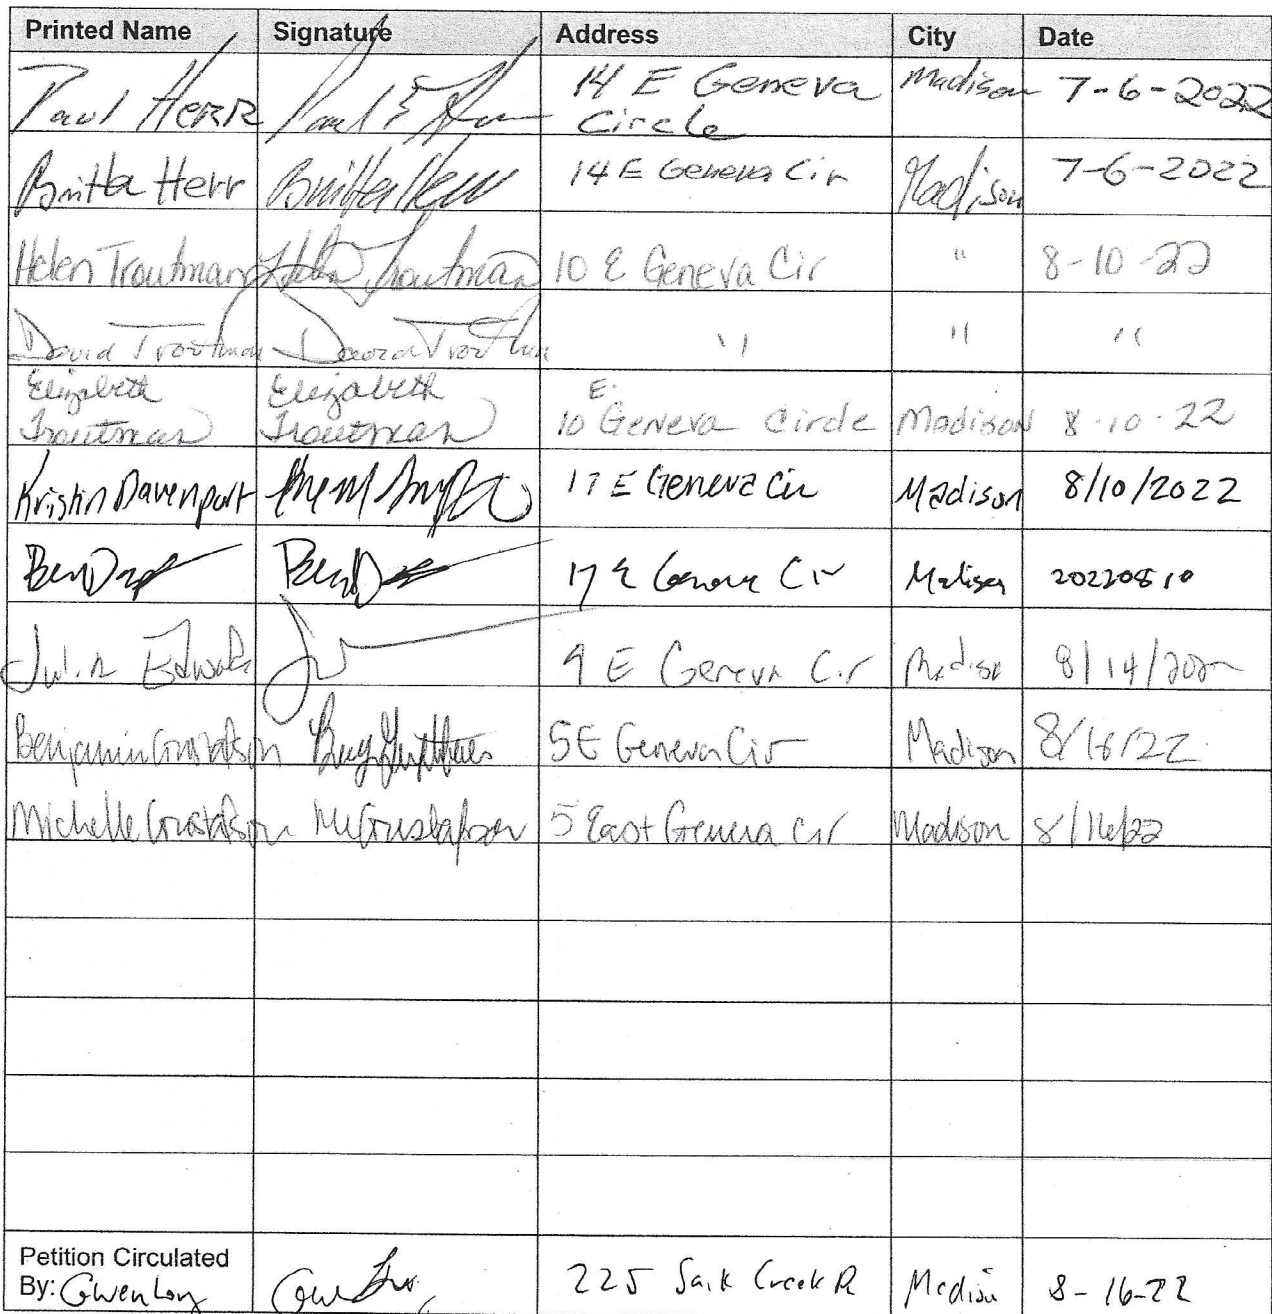 Printed Name Signature Address City Date
Paul Herr Paul E Herr 14 E Geneva Circle Madison 7-6-2022
Britta Herr Britta Herr 14 E Geneva Cir Madison 7-6-2022
Helen Troutman Helen Troutman 10 E Geneva Cir " 8-10-22
David Troutman David Troutman " " "
Elizabeth Troutman Elizabeth Troutman 10 E. Geneva Circle Madison 8-10-22
Kristin Davenport 17 E Geneva Cir Madison 8/10/2022
Ben Ben 17 E Geneva Cir Madison 20220810
Julia Edwards 9 E Geneva Cir Madison 8/14/2022
Benjamin Gustafson 5 E Geneva Cir Madison 8/16/22
Michelle Gustafson M Gustafson 5 East Geneva Cir Madison 8/16/22
Petition Circulated
By: Gwen Long 225 Creek Madison 8-16-22